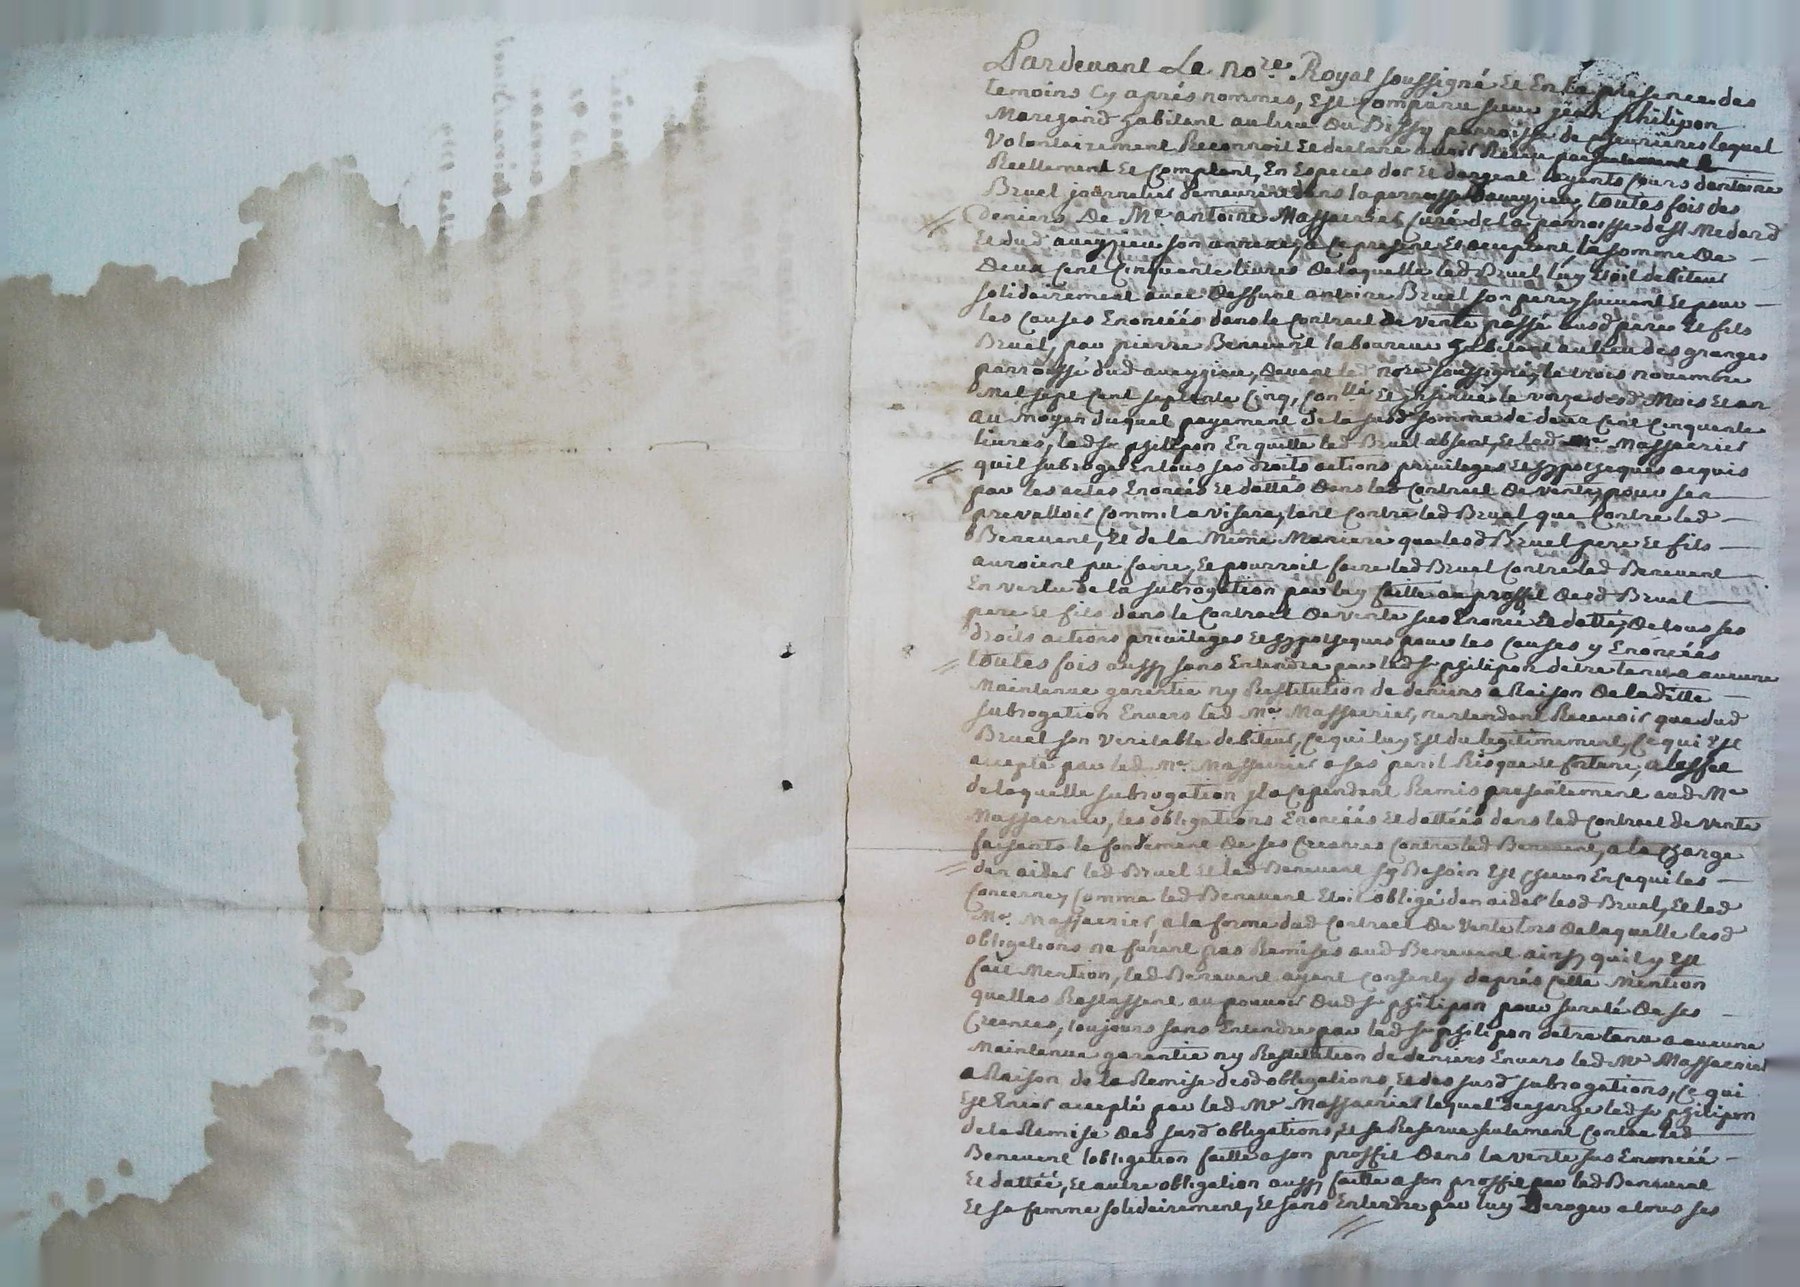 Pardevant Le no.re Royal soussigné Et En la presence des
temoins Cy aprés nommés, Est comparu sieur jean philipon
Marchand habitant au lieu Du parroisse de lequel
Volontairement Reconnoit Et declare avoir Receu presentement &
Reellement Et Comptant, En Especes dor Et dargent ayants Cours dantoine
Bruel journalier demeurent dans la parroisse daveyzieu, toutes fois des
deniers De Me antoine Massacrier Curé de la parroisse de st Medard
Et dud aveyzieu son annexe, a ce present Et acceptant, la somme De
Deux Cent Cinquante livres De laquelle led Bruel luy Etoit debiteur
solidairement avec Deffunt antoine Bruel son pere, suivant Et pour
les Causes Enoncéés dans le Contract de vente passé ausd pere Et fils
Bruel, par pierre Benevent laboureur habitant au lieu des granges
parroisse dud aveyzieu, devant led nore soussigné, le trois novembre
Mil sept Cent septente Cinq, Conllé Et insinué le onze desd Mois Et an
au moyen duquel payement de la susd somme de deux Cent Cinquente
livres, led sr philipon En quitte led Bruel absent, Et led Me Massacrier
quil subroge En tous ses droits actions privileges Et hypotheques acquis
par les actes Enoncés Et dattés dans led Contract De vente, pour sen
prevalloir Comm'il avisera, tant Contre led Bruel que Contre led
Benevent, Et de la Méme Maniere que lesd Bruel pere Et fils
auroient pu faire, Et pourroit faire led Bruel Contre led Benevent
En vertu de la subrogation par luy faitte au proffit Desd Bruel
pere Et fils dans le Contract De vente sus Enoncé Et datté, De tous ses
droits actions privileges Et hypotheques pour les Causes y Enoncéés
toutes fois aussy sans Entendre par led sr philipon detre tenu a aucune
Maintenue garentie ny Restitution de deniers a Raison De laditte
subrogation Envers led Me Massacrier, nentendant Recevoir que dud
Bruel son veritable debiteur, Ce qui luy Est du legitimement, Ce qui Est
accepté par led Me Massacrier a ses peril Risque Et fortune, a leffet
de laquelle subrogation jl a Cependant Remis presentement aud Me
Massacrier, les obligations Enoncéés Et dattéés dans led Contract de vente
faisants le fondement De ses Creances Contre led Benevent, a la Charge
den aider led Bruel Et led Benevent sy Besoin Est chacun En ce qui les
Concerne, Comme led Benevent Etoit obligé den aider lesd Bruel, Et led
Me. Massacrier, a la forme dud Contract De vente lors de laquelle lesd
obligations ne furent pas Remises aud Benevent ainsy quil y Est
fait Mention, led Benevent ayant Consenty daprés Cette Mention
quelles Restassent au pouvoir dud sr philipon pour sureté De ses
Creances, toujours sans Entendre par led sr philipon detre tenu a aucune
Maintenue garentie ny Restitution de deniers Envers led Me Massacrier
a Raison de la Remise desd obligations, Et des susd subrogations, Ce qui
Est Encor accepté par led Me Massacrier lequel decharge led sr philipon
de la Remise Des susd obligations, Et se Reserve seulement Contre led
Benevent lobligation faitte a son proffit Dans la vente sus Enoncéé
Et dattéé, Et autre obligation aussy faitte a son proffit par led Benevent
Et sa femme solidairement, Et sans Entendre par luy Deroger a tous ses